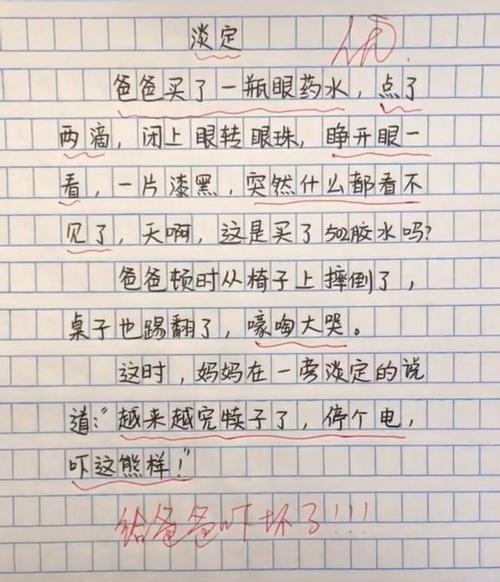 淡定
优
爸爸买了一瓶眼药水，点了
两滴，闭上眼转眼珠，睁开眼一
看，一片漆黑，突然什么都看不
见了，天啊，这是买了502胶水吗？
爸爸顿时从椅子上摔倒了，
桌子也踢翻了，嚎啕大哭。
这时，妈妈在一旁淡定的说
道：“越来越完犊子了，停个电，
吓这熊样！”
给爸爸吓坏了!!!